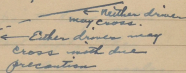 Neither driver
may cross.
Either driver may
cross with due
precaution